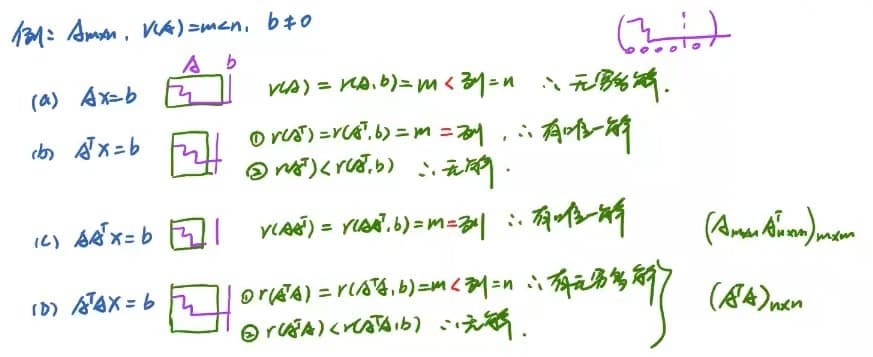 例: Aₘₓₙ, r(A)=m<n, b≠0
A b
(a) Ax=b r(A) = r(A,b)=m < 列=n ∴无穷多解.
(b) Aᵀx=b ① r(Aᵀ)=r(Aᵀ,b)=m =列, ∴有唯一解
② r(Aᵀ)<r(Aᵀ,b) ∴无解.
(C) AAᵀx=b r(AAᵀ) = r(AAᵀ,b)=m=列 ∴有唯一解 (Aₘₓₙ Aᵀₙₓₘ)ₘₓₘ
(D) AᵀAx=b ① r(AᵀA) = r(AᵀA,b)=m < 列=n ∴有无穷多解 (AᵀA)ₙₓₙ
② r(AᵀA)<r(AᵀA,b) ∴无解.